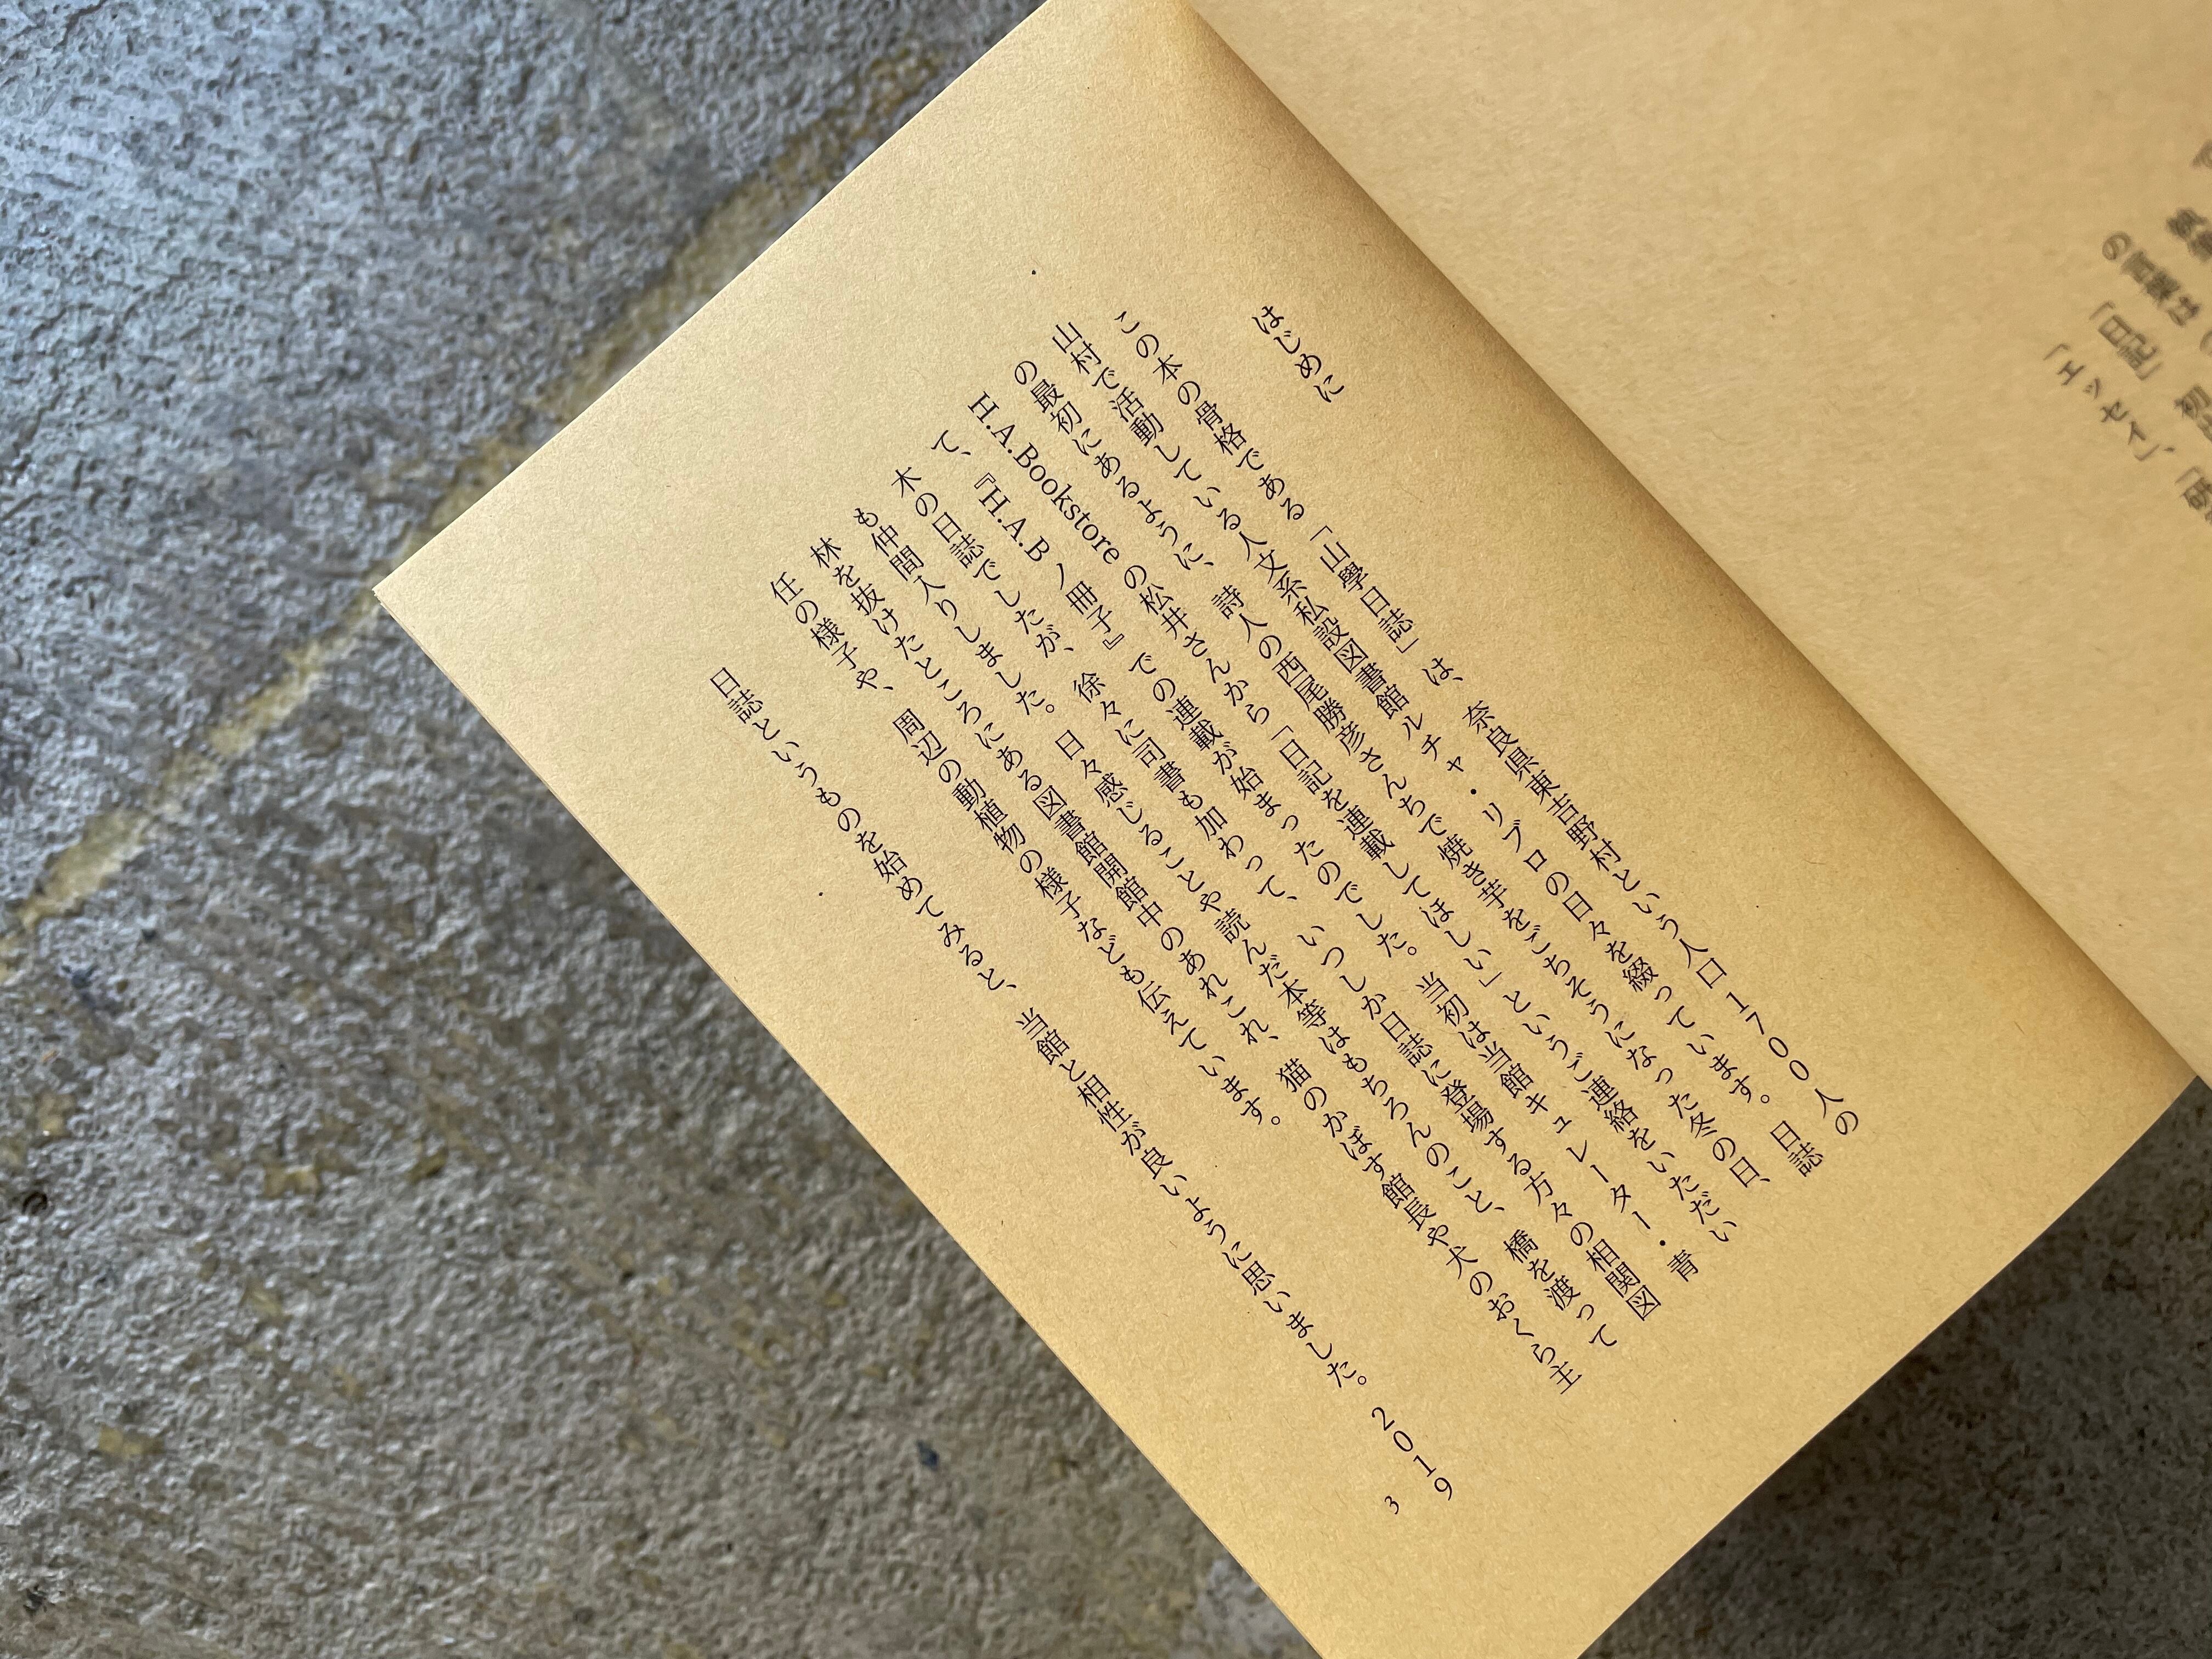 はじめに
この本の骨格である「山學日誌」は、奈良県東吉野村という人口1700人の
山村で活動している人文系私設図書館ルチャ・リブロの日々を綴っています。日誌
の最初にあるように、詩人の西尾勝彦さんちで焼き芋をごちそうになった冬の日、
H.A.Bookstoreの松井さんから「日記を連載してほしい」というご連絡をいただい
て、『H.A.Bノ冊子』での連載が始まったのでした。当初は当館キュレーター・青
木の日誌でしたが、徐々に司書も加わって、いつしか日誌に登場する方々の相関図
も仲間入りしました。日々感じることや読んだ本等はもちろんのこと、橋を渡って
林を抜けたところにある図書館開館中のあれこれ、猫のかぼす館長や犬のおくら主
任の様子や、周辺の動植物の様子なども伝えています。
日誌というものを始めてみると、当館と相性が良いように思いました。2019
3
の言葉は
「日記」
「エッセイ」、「研